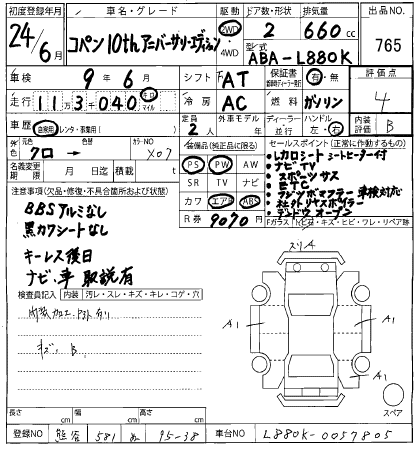 初度登録年月 車名・グレード 駆動 ドア数・形状 排気量 出品NO.
24/6月 コペン 10th アニバーサリーエディション 2WD 4WD 2 660cc 765
型式 ABA-L880K
車検 9年6月 シフト FAT 保証書 有・無 評価点
走行 11万3千040 キロ マイル 冷房 AC 燃料 ガソリン 4
車歴 自家用 レンタ・事業用( ) 定員 2人 ディーラー ハンドル 左・右 内装評価 B
外色 元色 クロ 色替 カラーNO X07
装備品(純正品に限る) セールスポイント(正常に作動するもの)
PS PW AW
SR TV ナビ
カワ エアB ABS
R券 9070円
レカロシート シートヒーター付
ナビ TV
スポーツサス
ETC
車検対応
オープン
Fガラス
名義変更期限 月 日迄 積載 t
注意事項(欠品・修復・不具合箇所および状態)
BBSアルミなし
黒カワシートなし
キーレス後日
ナビ、車 取説有
検査員記入 内装 汚レ・スレ・キズ・キレ・コゲ・穴
キズ B
スリA
A1 A1
A1 A1
スペア
長さ cm 幅 cm 高さ cm
登録NO 熊谷 581 め 95-38 車台NO L880K-0057805